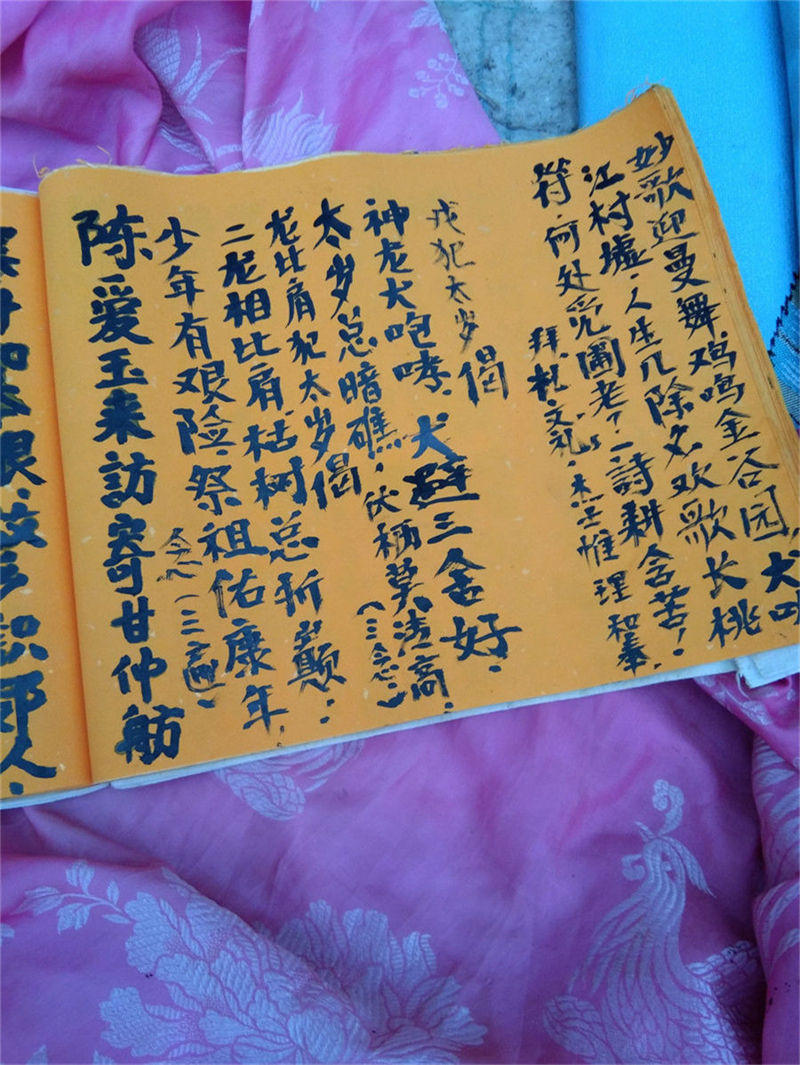 妙歌迎曼舞,鸡鸣金谷园,犬吠
江村墟.人生几除夕欢歌长桃
符.何处觅圃老?一詩耕含苦!
拜.札.文礼.杰士惟理和奉.
戌犯太岁偈
神龙犬咆哮.犬避三舍好.
太岁总暗礁,伏栖莫清高.(三念)
龙比肩犯太岁偈
二龙相比肩.枯树总折巅.
少年有艰险.祭祖佑康年.
念(三遍)
陈爱玉来訪寄甘仲舫